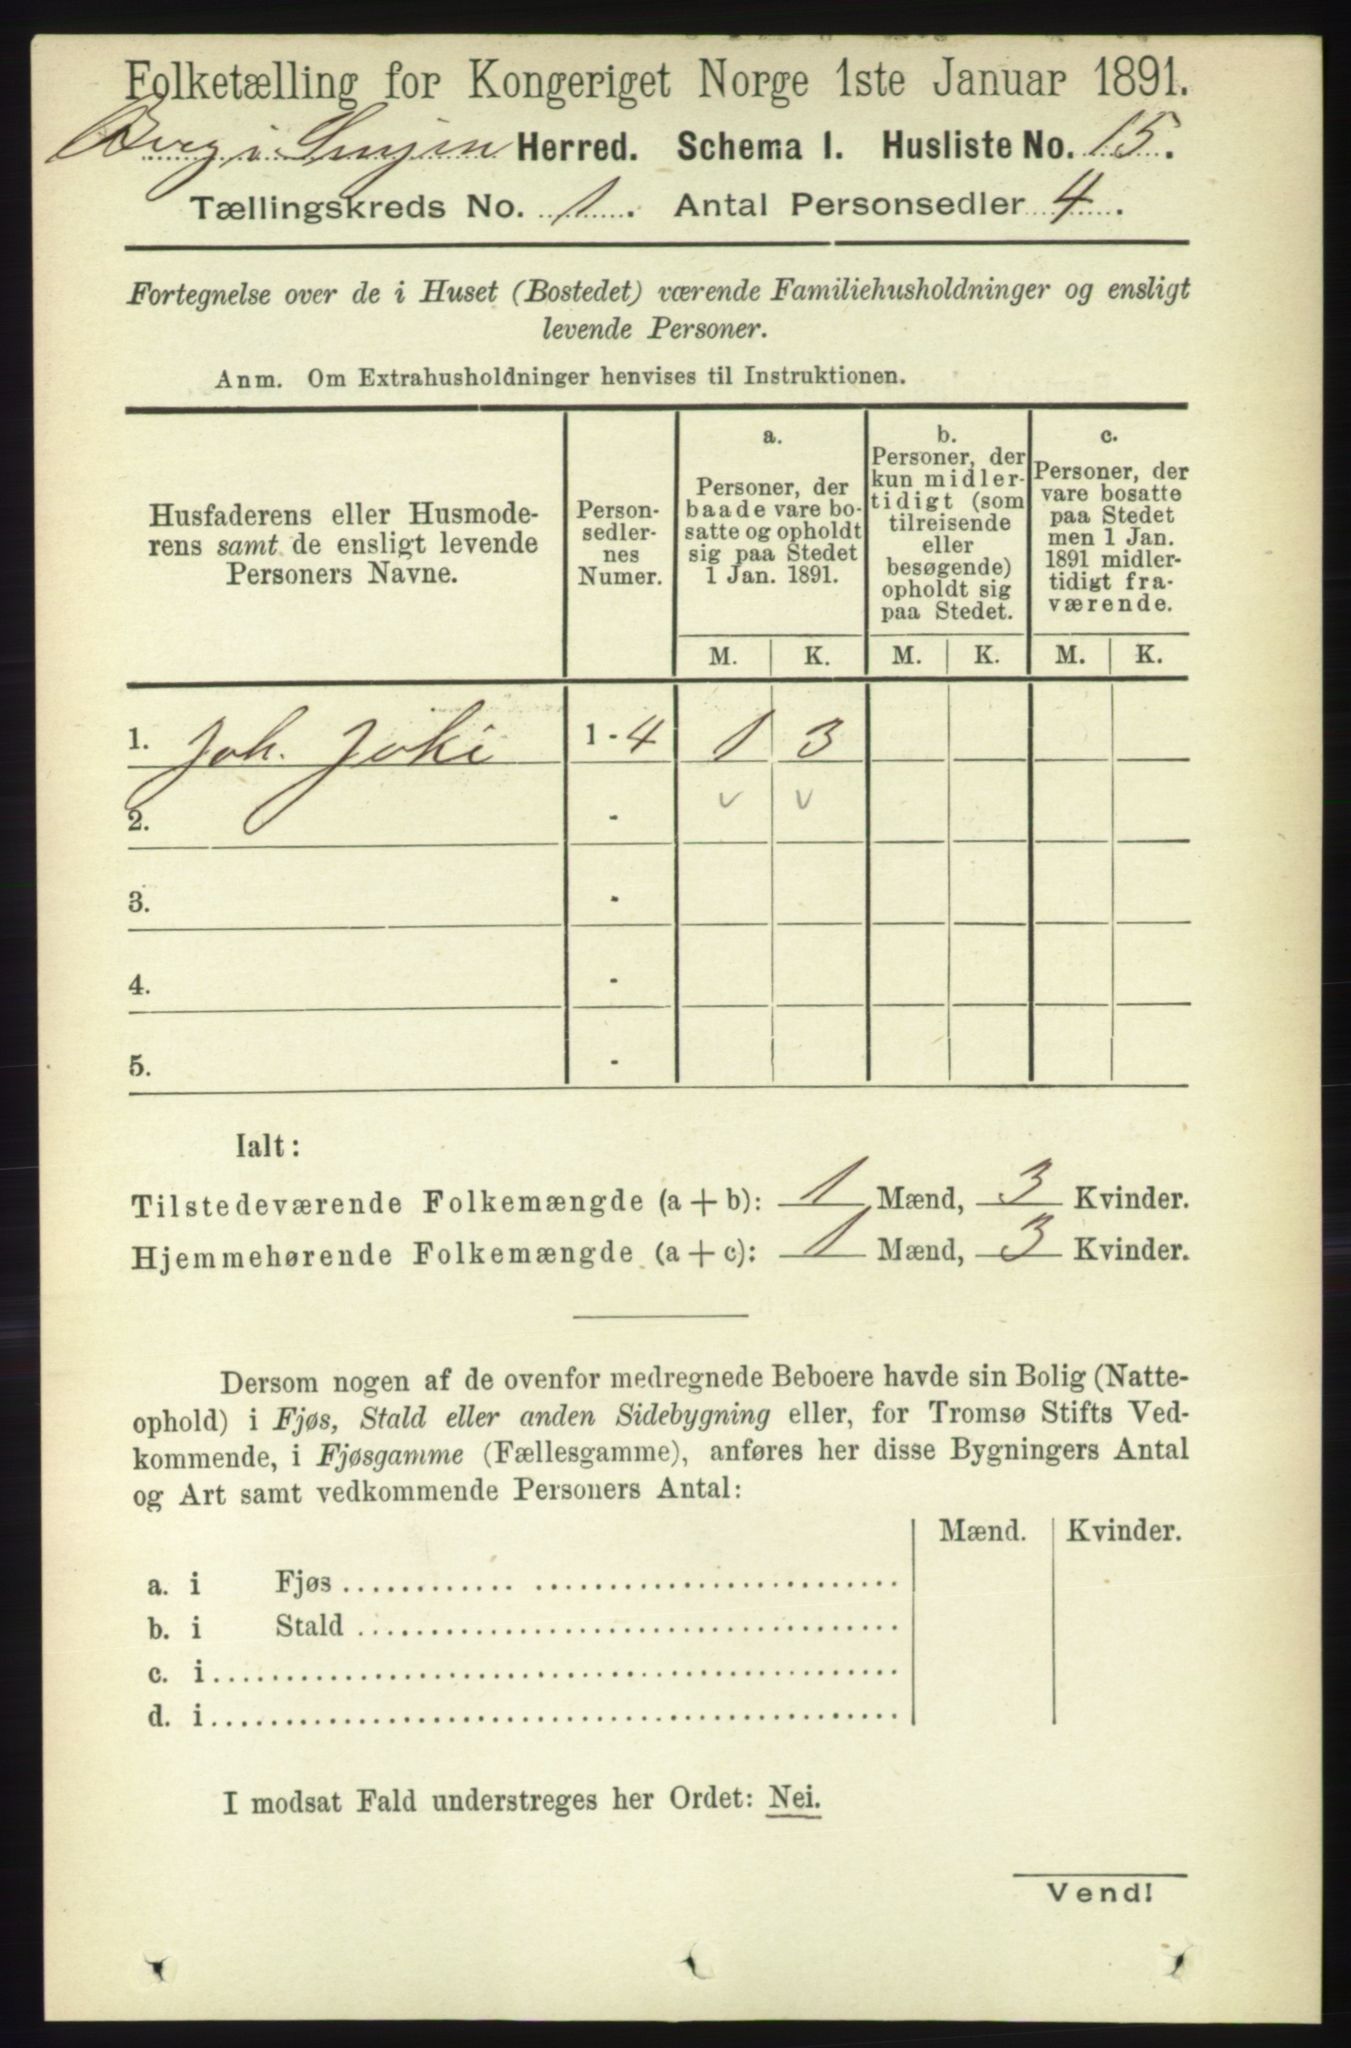 Folketælling for Kongeriget Norge 1ste Januar 1891.
Berg i Senjen Herred. Schema I. Husliste No. 15.
Tællingskreds No. 1. Antal Personsedler 4.
Fortegnelse over de i Huset (Bostedet) værende Familiehusholdninger og ensligt
levende Personer.
Anm. Om Extrahusholdninger henvises til Instruktionen.
Husfaderens eller Husmode-
rens samt de ensligt levende
Personers Navne.
Person-
sedler-
nes
Numer.
a.
Personer, der
baade vare bo-
satte og opholdt
sig paa Stedet
1 Jan. 1891.
b.
Personer, der
kun midler-
tidigt (som
tilreisende
eller
besøgende)
opholdt sig
paa Stedet.
c.
Personer, der
vare bosatte
paa Stedet
men 1 Jan.
1891 midler-
tidigt fra-
værende.
M. K. M. K. M. K.
1. Joh. Joki 1 - 4 1 3
2. - v v
3. -
4. -
5. -
Ialt:
Tilstedeværende Folkemængde (a + b): 1 Mænd, 3 Kvinder.
Hjemmehørende Folkemængde (a + c): 1 Mænd, 3 Kvinder.
Dersom nogen af de ovenfor medregnede Beboere havde sin Bolig (Natte-
ophold) i Fjøs, Stald eller anden Sidebygning eller, for Tromsø Stifts Ved-
kommende, i Fjøsgamme (Fællesgamme), anføres her disse Bygningers Antal
og Art samt vedkommende Personers Antal:
Mænd. Kvinder.
a. i Fjøs
b. i Stald
c. i
d. i
I modsat Fald understreges her Ordet: Nei.
Vend!